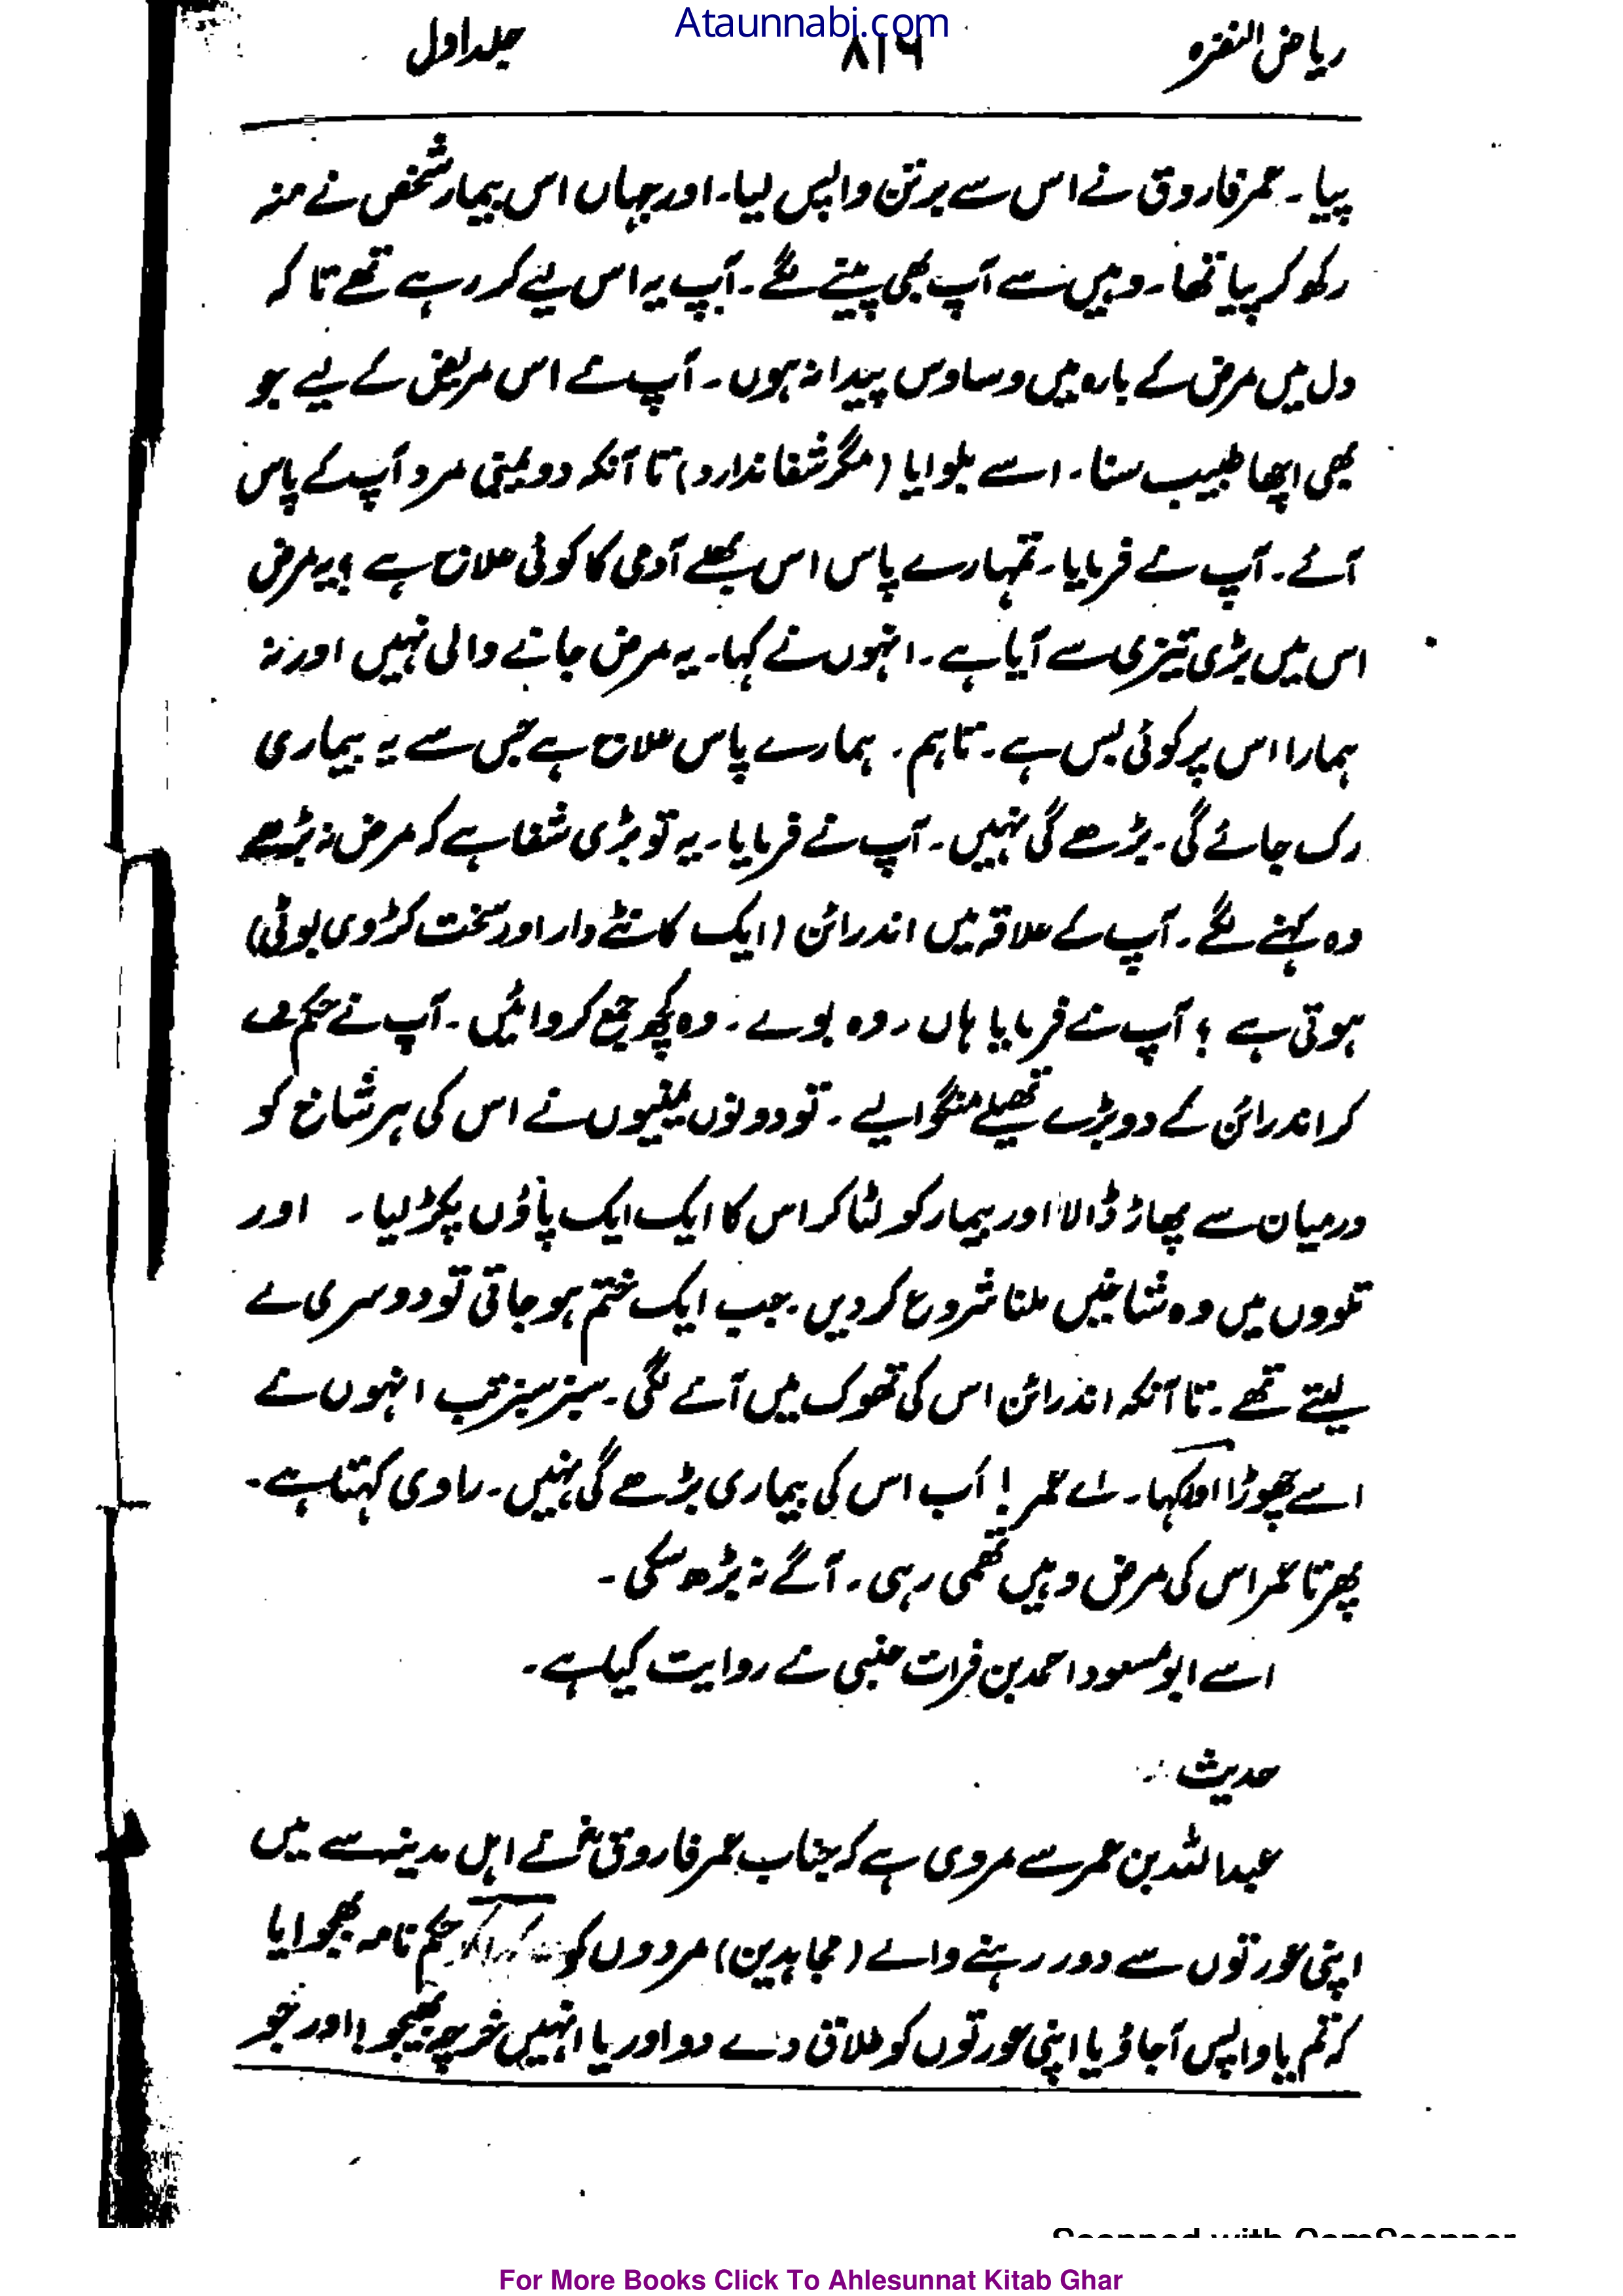 Ataunnabi.com
ریاض النضرہ ۸۱۶ جلد اول
پیا۔ عمر فاروق نے اس سے برتن واپس لیا۔ اور جہاں اس بیمار شخص نے منہ
رکھ کر پیا تھا۔ وہیں سے آپ بھی پینے لگے۔ آپ یہ اس لیے کر رہے تھے تا کہ
دل میں مرض کے بارہ میں وساوس پیدا نہ ہوں۔ آپ نے اس مریض کے لیے جو
بھی اچھا طبیب سنا۔ اسے بلوایا (مگر شفا ندارد) تا آنکہ دو یمنی مرد آپ کے پاس
آئے۔ آپ نے فرمایا۔ تمہارے پاس اس بھلے آدمی کا کوئی علاج ہے؟ یہ مرض
اس میں بڑی تیزی سے آیا ہے۔ انہوں نے کہا۔ یہ مرض جانے والی نہیں اور نہ
ہمارا اس پر کوئی بس ہے۔ تاہم۔ ہمارے پاس علاج ہے جس سے یہ بیماری
رک جائے گی۔ بڑھے گی نہیں۔ آپ نے فرمایا۔ یہ تو بڑی شفا ہے کہ مرض نہ بڑھے
وہ کہنے لگے۔ آپ کے علاقہ میں اندرائن (ایک کانٹے دار اور سخت کڑوی بوٹی)
ہوتی ہے؟ آپ نے فرمایا ہاں۔ وہ بولے۔ وہ کچھ جمع کروائیں۔ آپ نے حکم دے
کر اندرائن کے دو بڑے تھیلے منگوا لیے۔ تو دونوں یمنیوں نے اس کی ہر شاخ کو
درمیان سے پھاڑ ڈالا اور بیمار کو لٹا کر اس کا ایک ایک پاؤں پکڑ لیا۔ اور
تلووں میں وہ شاخیں ملنا شروع کر دیں۔ جب ایک ختم ہو جاتی تو دوسری لے
لیتے تھے۔ تا آنکہ اندرائن اس کی تھوک میں آنے لگی۔ سبز سبز تب انہوں نے
اسے چھوڑا اور کہا۔ اے عمر! اب اس کی بیماری بڑھے گی نہیں۔ راوی کہتا ہے۔
پھر تا عمر اس کی مرض وہیں تھمی رہی۔ آگے نہ بڑھ سکی۔
اسے ابو مسعود احمد بن فرات ضبی نے روایت کیا ہے۔
حدیث:۔
عبداللہ بن عمر سے مروی ہے کہ جناب عمر فاروقؓ نے اہل مدینہ سے میں
اپنی عورتوں سے دور رہنے والے (مجاہدین) مردوں کو حکم نامہ بھجوایا
کہ تم یا واپس آجاؤ یا اپنی عورتوں کو طلاق دے دو اور یا انہیں خرچہ بھیجو! اور جو
For More Books Click To Ahlesunnat Kitab Ghar